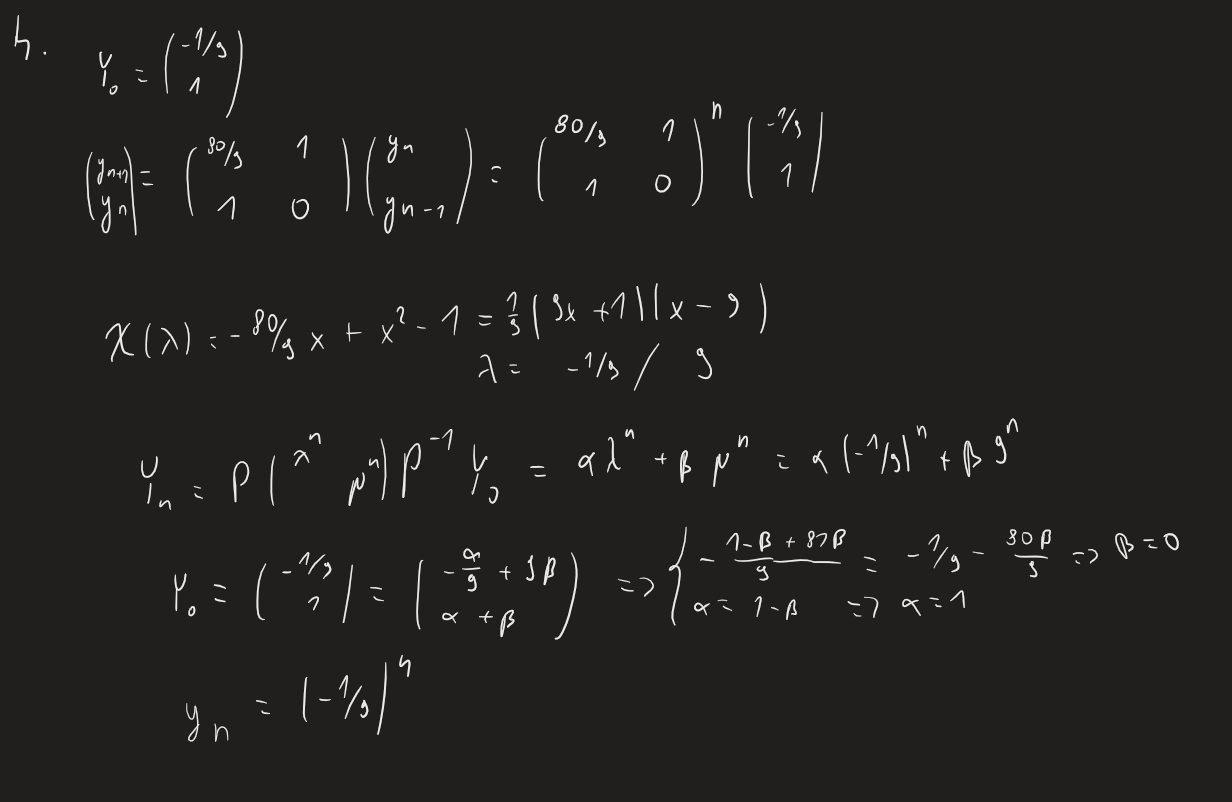 4.
Y₀ = (-1/9 1)
(yₙ₊₁ yₙ) = (80/9 1 1 0) (yₙ yₙ₋₁) = (80/9 1 1 0)ⁿ (-1/9 1)
χ(λ) = -80/9 x + x² - 1 = 1/9 (9x + 1)(x - 9)
λ = -1/9 / 9
Yₙ = P (λⁿ μⁿ) P⁻¹ Y₀ = αλⁿ + βμⁿ = α(-1/9)ⁿ + β9ⁿ
Y₀ = (-1/9 1) = (-α/9 + 9β α + β) => { - 1-β + 81β / 9 = -1/9 - 80β/9 => β = 0
α = 1-β => α = 1
yₙ = (-1/9)ⁿ